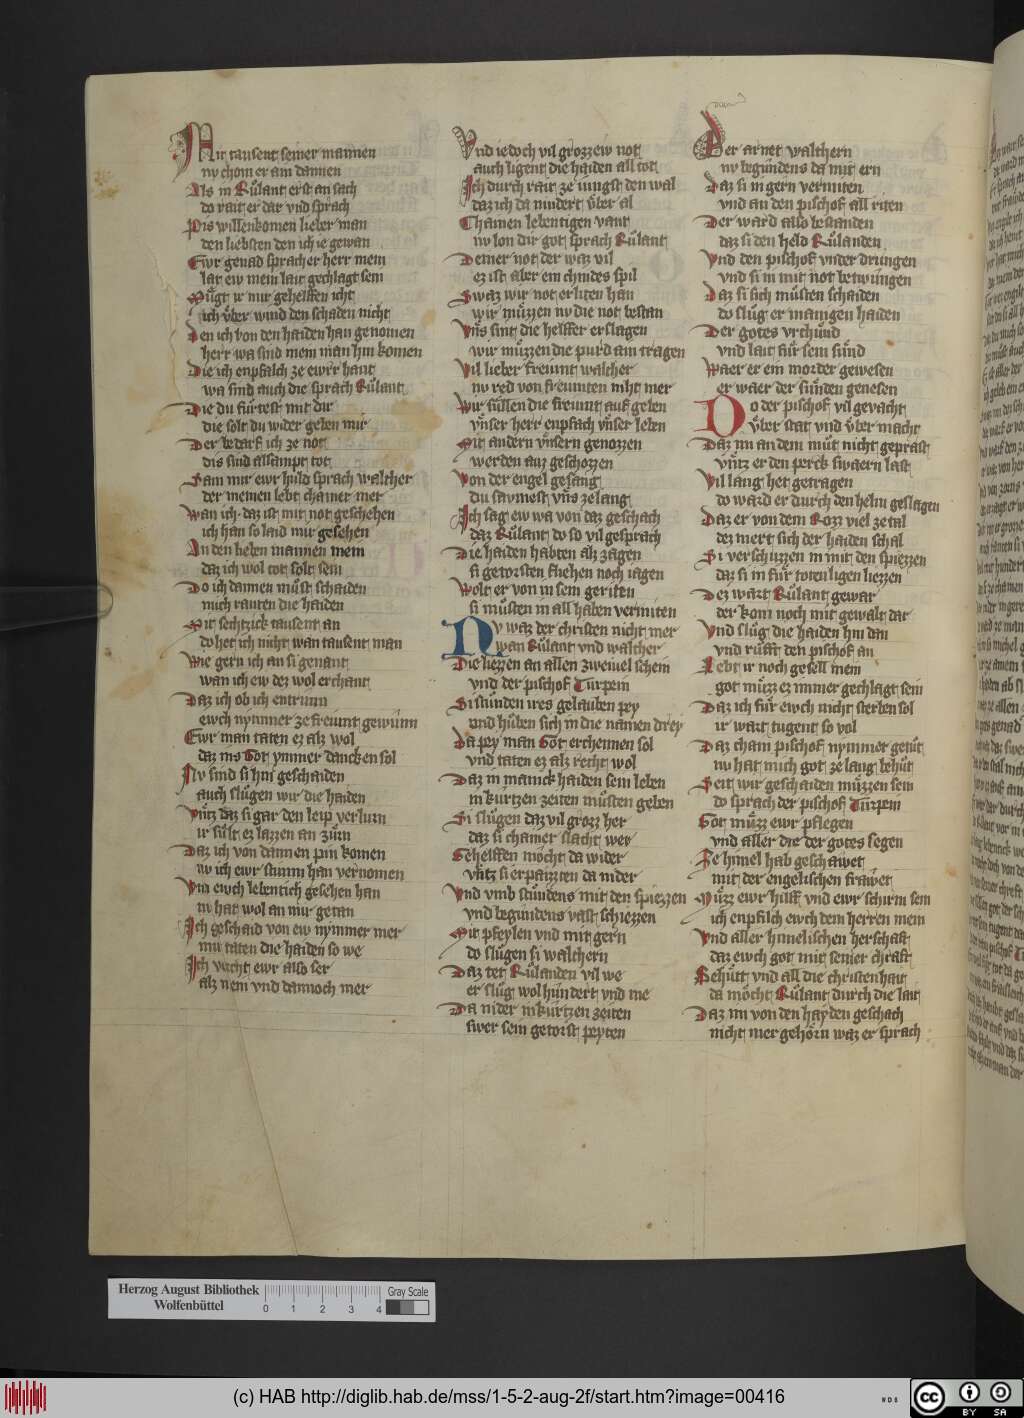 Mit tausent seiner mannen
nv chom er am dannen
Als in Růlant erst an sach
do rait er dar vnd sprach
Pis willenkomen lieber man
den liebsten den ich ie gewan
Ewr genad sprach er herr mein
lat ew mein lait gechlagt sein
Mügt ir mir gehelffen icht
ich v̊ber wind den schaden nicht
Den ich von den haiden han genomen
herr wa sind mein man hin komen
Die ich enpfalch ze ewrr hant
wa sind auch die sprach Růlant
Die du fůrtest mit dir
die solt du wider geben mir
Der bedarf ich ze not
dis sind allsampt tot
Sam mir ewr huld sprach walther
der meinen lebt chainer mer
Wan ich daz ist mit not geschehen
ich han so laid mir gesehen
An den lieben mannen mein
daz ich wol tot solt sein
Do ich dannen můst schaiden
mich ranten die haiden
Mit sechtzick tausent an
do het ich nicht wan tausent man
Wie gern ich an si genant
wan ich ew dez wol erchant
Daz ich ob ich entrunn
ewch nymmer ze freunt gewunn
Ewr man taten ez alz wol
daz ins Got ymmer dancken sol
Nv sind si hin geschaiden
auch slůgen wir die haiden
Vntz daz si gar den leip verlurn
ir sült ez lazzen an zürn
Daz ich von dannen pin komen
nv ich ewr stimm han vernomen
Vnd ewch lebentich gesehen han
nv hat wol an mir getan
Ich geschaid von ew nymmer mer
mir taten die haiden so we
Ich vorcht ewr also ser
alz mein vnd dannoch mer
Vnd iedoch vil grozzew not
auch ligent die haiden all tot
Ich durch rait ze iungst den wal
daz ich da nindert v̊ber al
Chainen lebentigen vant
nv lon dir got sprach Růlant
Deiner not der waz vil
ez ist aber ein chindes spil
Swaz wir not erliten han
wir můzzen nv die not bestan
Vns sint die helffer erslagen
wir můzzen die purd ain tragen
Vil lieber freunt walther
nv red von freunten niht mer
Wir süllen die freunt auf geben
vnser herr enpfach vnser leben
Mit andern vnsern genozzen
werden auz geschozzen
Von der engel gesang
du saumest vns ze lang
Ich sag ew wa von daz geschach
daz Růlant do so vil gesprach
Die haiden habten alz zagen
si getorsten fliehen noch iagen
Wolt er von in sein geriten
si můsten in all haben vermiten
Nv waz der christen nicht mer
wan Růlant vnd walther
Die liezzen an allen zweiuel schein
vnd der pischof Turpein
Si stunden ires gelauben pey
vnd hůben sich in die namen drey
Da pey man Got erchennen sol
vnd taten ez alz recht wol
Daz in manick haiden sein leben
in kürtzen zeiten můsten geben
Si slůgen daz vil grozz her
daz si chainer slacht wer
Gehelffen mocht da wider
vntz si erpaizzten da nider
Vnd vmb stůndens mit den spiezzen
vnd begundens vast schiezzen
Mit pfeylen vnd mit gern
do slůgen si walthern
Daz tet Růlanden vil we
er slůg wol hundert vnd me
Da nider in kürtzen zeiten
swer sein getorst peyten
Der arnet walthern
nv begundens da mit ern
Daz si in gern vermiten
vnd an den pischof all riten
Der ward also bestanden
daz si den held Růlanden
Vnd den pischof vnder drungen
vnd si in mit not betwungen
Daz si sich můsten schaiden
do slůg er manigen haiden
Der gotes vrchünd
vnd lait für sein sünd
Waer er ein morder gewesen
er waer der sünden genesen
Do der pischof vil gevacht
v̊ber stat vnd v̊ber macht
Daz im an dem můt nicht geprast
vntz er den perck swaern last
Vil lang het getragen
do ward er durch den helm geslagen
Daz er von dem Rozz viel ze tal
dez mert sich der haiden schal
Si verschuzzen in mit den spiezzen
daz si in für toten ligen liezzen
Dez wart Růlant gewar
der kom noch mit gewalt dar
Vnd slůg die haiden hin dan
vnd růfft den pischof an
Lebt ir noch gesell mein
got můzz ez immer gechlagt sein
Daz ich für ewch nicht sterben sol
ir wart tugent so vol
Daz chain pischof nymmer getůt
nv hat mich got ze lang behůt
Seit wir geschaiden můzzen sein
do sprach der pischof Turpein
Got můzz ewr pflegen
vnd aller die der gotes segen
Ze himel hab geschawet
mit der engelischen frawet
Můzz ewr hilff vnd ewr schirm sein
ich enpfilch ewch dem herren mein
Vnd aller himelischen herschaft
daz ewch got mit seiner chraft
Behůt vnd all die christenhait
da mocht Růlant durch die lait
Daz im von den hayden geschach
nicht mer gehörn waz er sprach
Herzog August Bibliothek
Wolfenbüttel
0 1 2 3 4
Gray Scale
(c) HAB http://diglib.hab.de/mss/1-5-2-aug-2f/start.htm?image=00416
WDB
cc BY SA